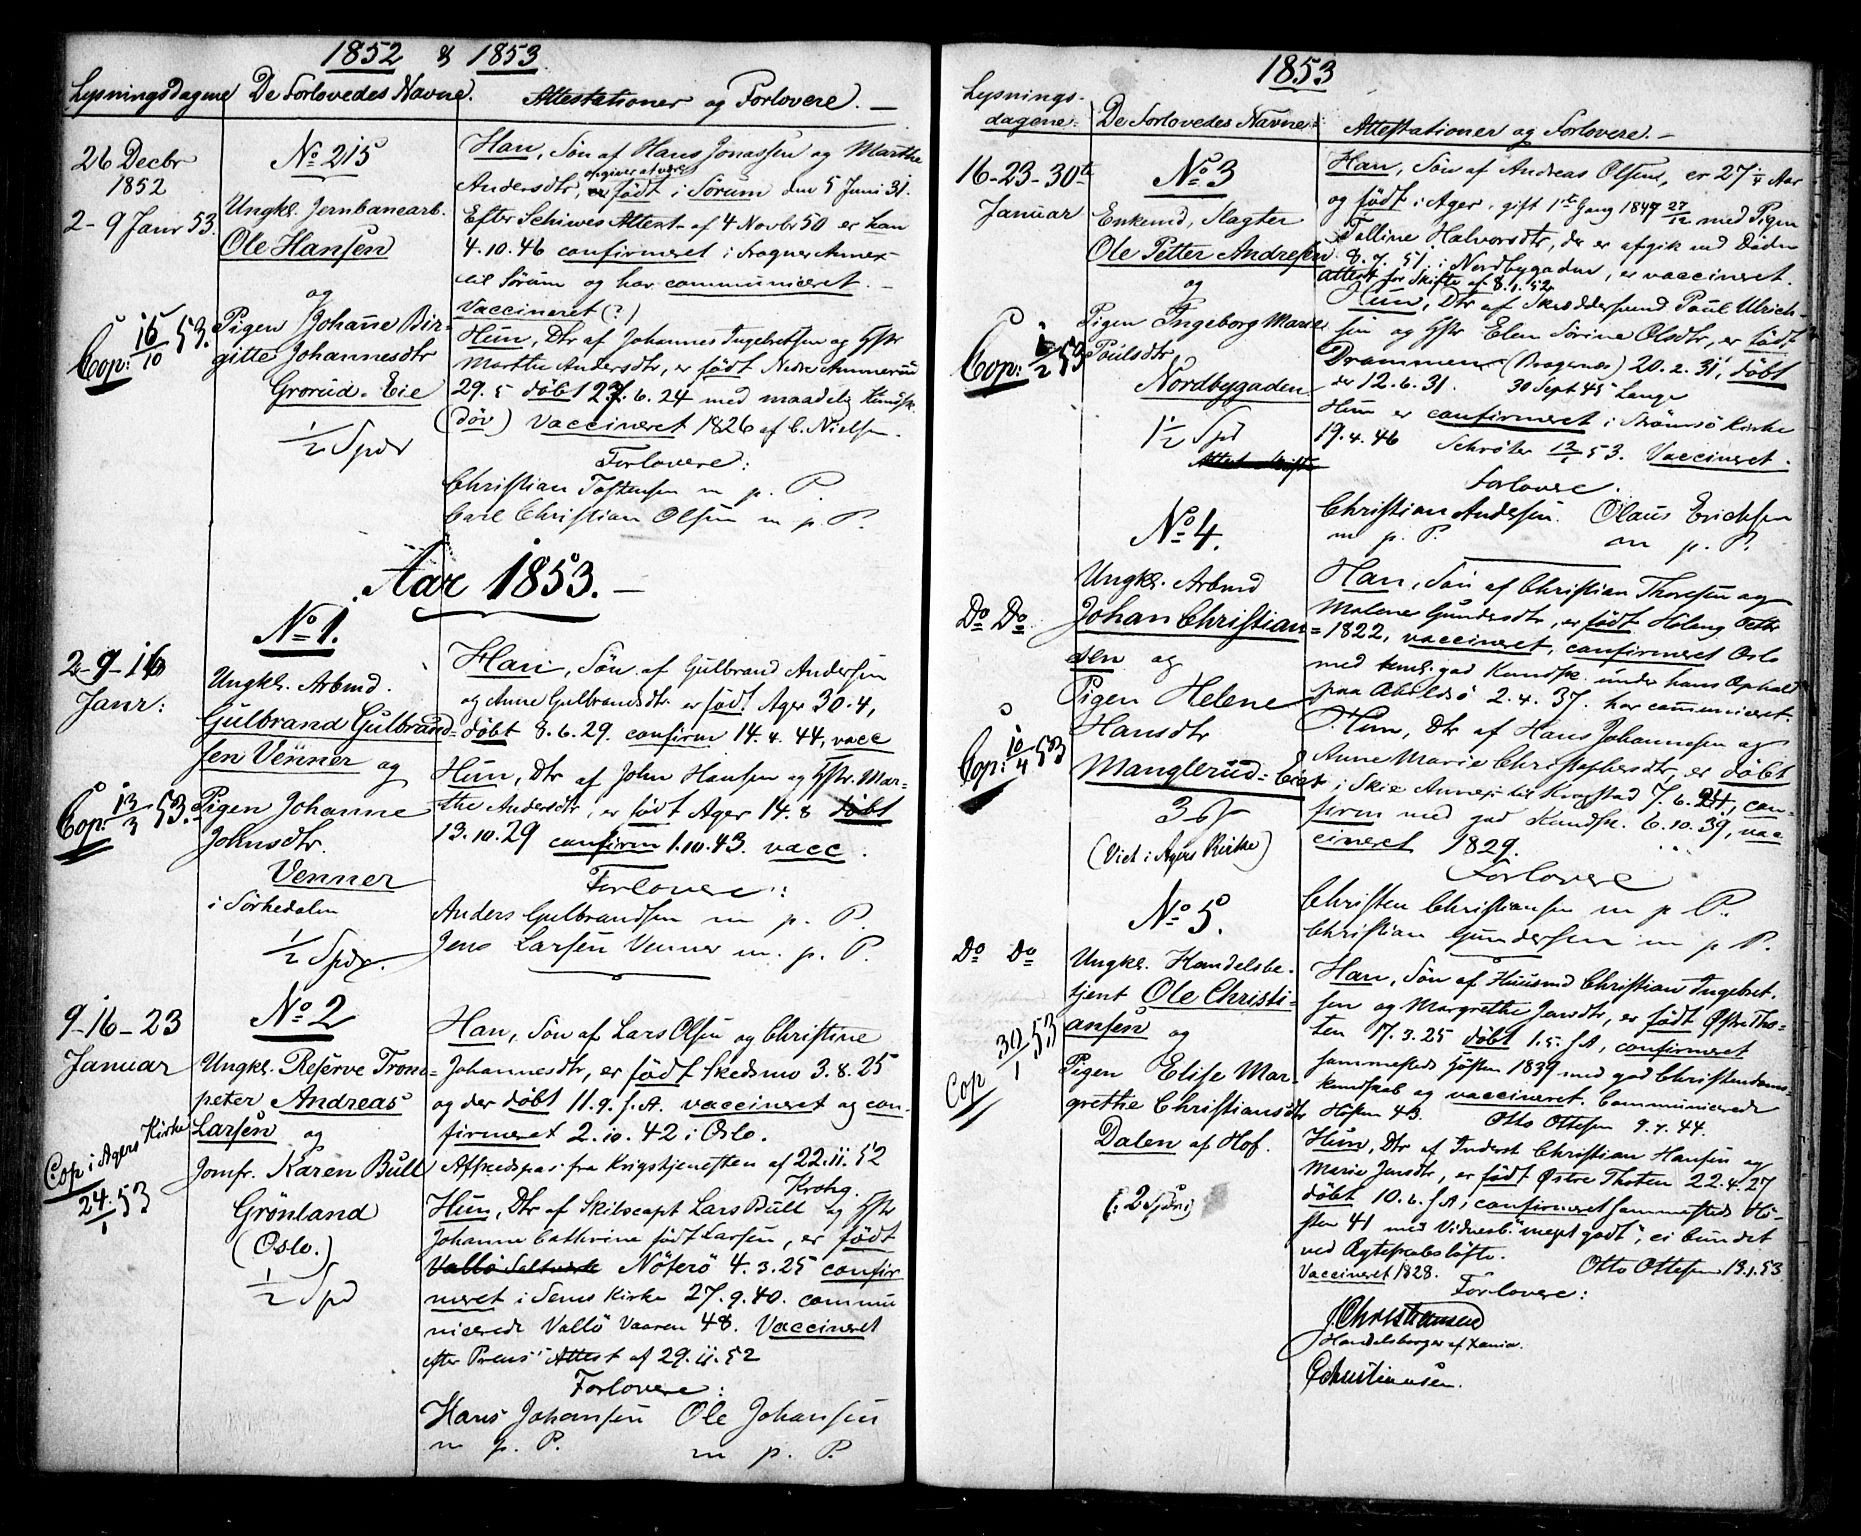 1852 & 1853
Lysningsdagene De Forlovedes Navne. Attestationer og Forlovere. —
26 Decbr
1852
2 - 9 Janr 53.
No 215
Ungkl. Jernbanearb.
Ole Hansen
og
Pigen Johane Bir-
gitte Johannesdtr
Grorud. Eie
1/2 Spdr
Cop: 16/10 53.
Han, Søn af Hans Jonassen og Marthe
Andersdtr, opgiver at være født i Sørum den 5 Juni 31.
Efter Schiwes Attest af 4 Novbr 50 er han
4.10.46 confirmeret i Frogner Annex
til Sørum og har communiceret. —
Vaccineret (?)
Hun, Dtr af Johannes Ingebretsen og Hstr
Marthe Andersdtr, er født Nedre Ammerud
29. 5 døbt 27. 6. 24 med maadelig Kundsk.
(døv) Vaccineret 1826 af C. Nielsen.
Forlovere:
Christian Tostensen m p. P.
Carl Christian Olsen m p. P.
Aar 1853. —
No 1.
2 - 9 - 16
Janr:
Ungkl. Arbmd.
Gulbrand Gulbrand-
sen Venner og
Pigen Johanne
Johnsdtr.
Venner
i Sørkedalen
1/2 Spdr.
Cop: 13/3 53.
Han, Søn af Gulbrand Andersen
og Anne Gulbrandsdtr. er født Ager 30.4,
døbt 8.6.29. confirm 14. 4. 44, vacc
Hun, Dtr af John Hansen og Hstr. Mar-
the Andersdtr, er født Ager 14. 8 døbt
13.10.29 confirm 1.10.43. vacc.
Forlovere:
Anders Gulbrandsen m p. P.
Jens Larsen Venner m. p. P.
No 2
9 - 16 - 23
Januar
Ungkl. Reserve Trom-
peter Andreas
Larsen og
Jomfr. Karen Bull
Grønland
(Oslo.)
1/2 Spd
Cop i Agers Kirke
24/1 53
Han, Søn af Lars Olsen og Christine
Johannesdtr, er født Skedsmo 3. 8. 25
og der døbt 11.9. s.A. vaccineret og con-
firmeret 2. 10. 42 i Oslo.
Affskedspas fra Krigstjenesten af 22.11.52
Krohg.
Hun, Dtr af Skibscapt Lars Bull og Hstr
Johanne Cathrine født Larsen, er født
Vallø Saltværk Nøterø 4. 3. 25 confir
meret i Sems Kirke 27. 9. 40. commu
nicerede Vallø Vaaren 48. Vaccineret
efter Preus' Attest af 29. 11. 52
Forlovere:
Hans Johansen Ole Johansen
m p. P. m p. P.
1853
Lysnings-
dagene. De Forlovedes Navne Attestationer og Forlovere. —
16 - 23 - 30te
Januar
No 3
Enkemd, Slagter
Ole Petter Andresen
og
Pigen Ingeborg Marie
Paulsdtr,
Nordbygaden.
1 1/2 Spd
Cop: 1/2 53
Han, Søn af Andreas Olsen, er 27 1/4 Aar
og født i Ager, gift 1ste Gang 1847 27/12 med Pigen
Talline Halvorsdtr, der er afgik ved Døden
8. 7. 51. i Nordbygaden, er vaccineret.
attest for Skifte af 8.1.52
Hun, Dtr af Skræddersvend Paul Ulrich-
sen og Hstr Elen Sørine Olsdtr, er født
Drammen (Bragenes) 20. 2. 31, døbt
der 12. 6. 31. 30 Sept 45 Lange
Hun er confirmeret i Strømsø Kirke
19. 4. 46 Schrøter 12/1 53. Vaccineret.
Forlovere.
Christian Andersen. Olaus Erichsen
m p. P. m p. P.
No 4.
Do Do.
Ungkl. Arbmd
Johan Christian-
sen og
Pigen Helene
Hansdtr
Manglerud-Eiet
(Viet i Agers Kirke)
Cop: 10/4 53
Han, Søn af Christian Thoresen og
Malene Gundersdtr, er født
1822, vaccineret, confirmeret Oslo
med temel. god Kundsk. under hans Ophold
paa Abildsø 2. 4. 37. har communiceret.
Hun, Dtr af Hans Johannesen og
Anne Marie Christophersdtr, er døbt
i Skie Annex til Kragstad 7. 6. 24, con-
firm med god Kundsk. 6. 10. 39, vac
cineret 1829.
Forlovere
Christen Christiansen m p P.
Christian Gundersen m p P.
No 5.
Do Do
Ungkl. Handelsbe-
tjent Ole Christi-
ansen og
Pigen Elise Mar-
grethe Christiansdtr
Dalen af Hof.
(: 2 Spd :)
Cop 30/1 53
Han, Søn af Huusmd Christian Ingebret-
sen og Margrethe Jensdtr, er født Østre Tho-
ten 17. 3. 25 døbt 1.5. s.A, confirmeret
sammesteds Høsten 1839 med god Christendoms-
kundskab og vaccineret. Communicerede
Høsten 43. Otto Ottesen 9. 7. 44.
Hun, Dtr af Inderst Christian Hansen og
Marie Jensdtr, er født Østre Thoten 22. 4. 27
døbt 10. 6. s.A, confirmeret sammesteds Hø-
sten 41 med Vidnesb. "meget godt", ei bundet
ved Ægteskabsløfte.
Vaccineret 1828. Otto Ottesen 13.1.53
Forlovere:
J Christiansen
Handelsborger af Xania.
C Christiansen.